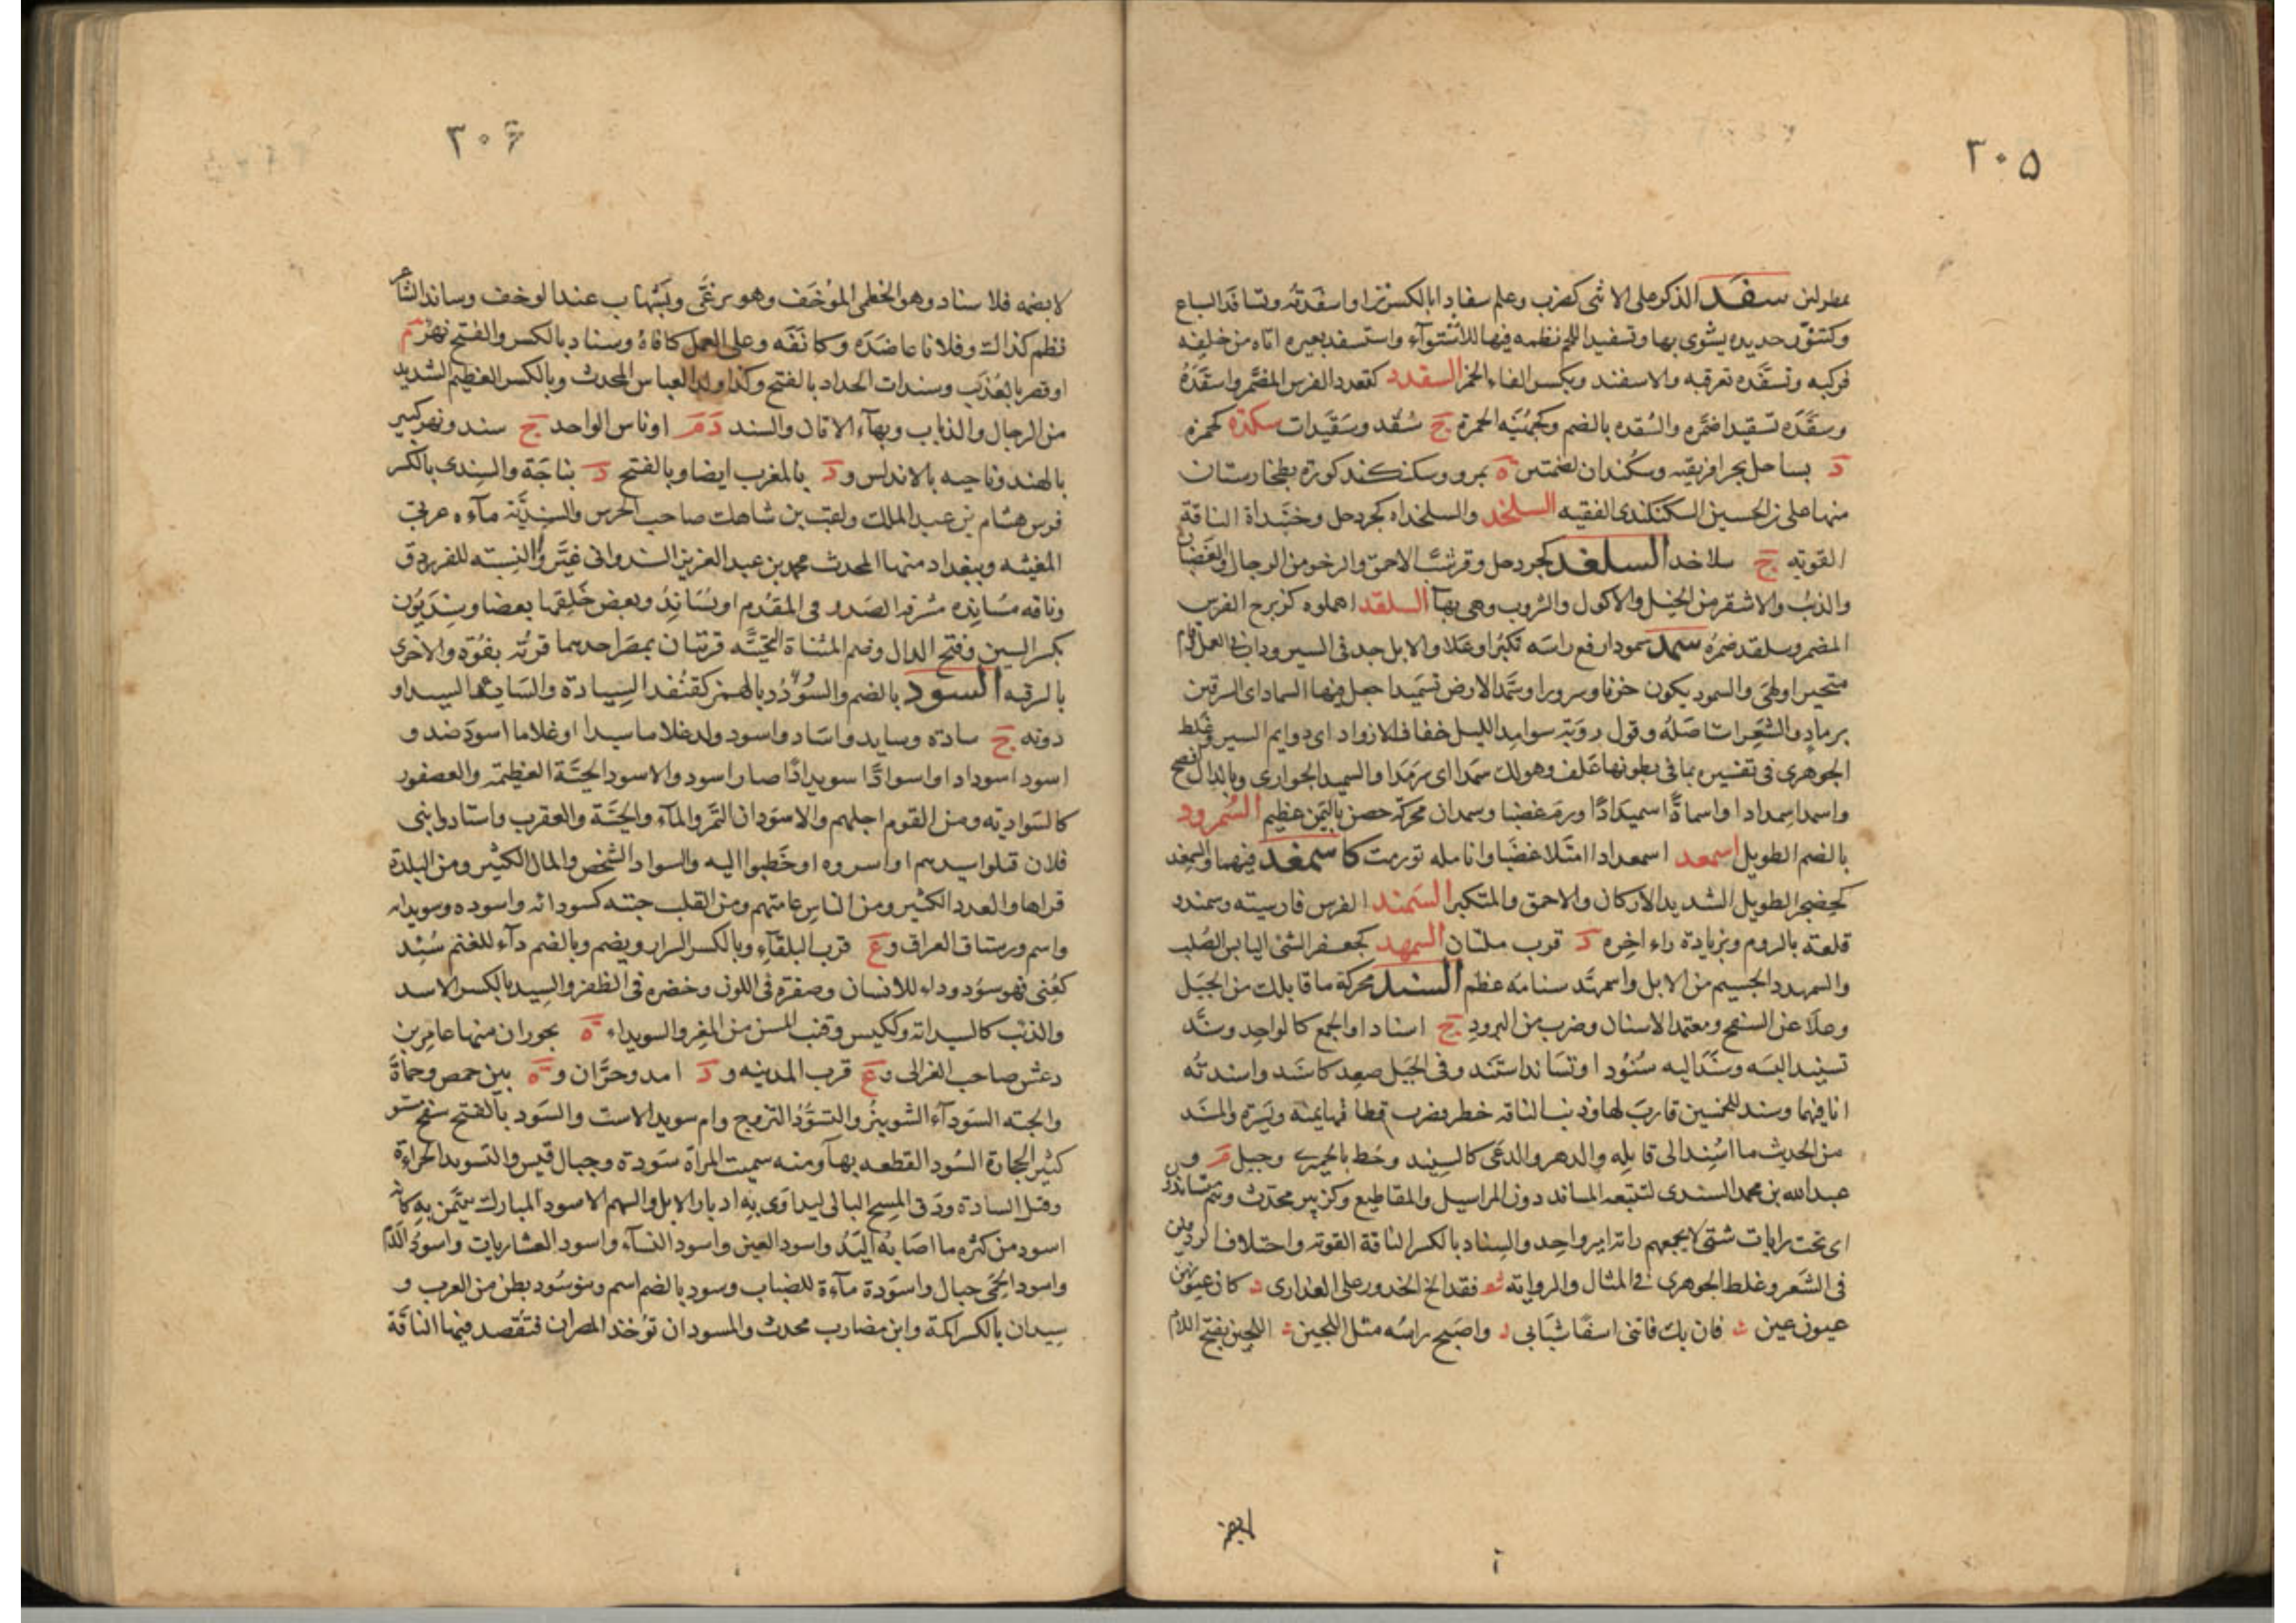 ٣٠٥
بمطرلين سفد الذكر على الانثى كضرب وعلم سفادا بالكسر نزا واسفدته وتسافد السباع
وكتنور حديده يشوى بها وتسفيد اللحم نظمه فيها للاشتوآء واستسفد بعيره اتاه من خلفه
فركبه وتسفده تعرقبه والاسفند وبكسر الفاء الخمر السقدد كقعدد الفرس المضمر واسقده
وسقده تسقيدا ضمره والسقده بالضم وكجهنيه الحمرة ج سقد وسقيدات سكدة كحمزه
د بساحل بحر افريقيه وسكندان بضمتين ه بمرو وسكنكند كورة بطخارستان
منها على بن الحسين السكنكندى الفقيه السلخد والسلخداه كجردحل وخبنداة الناقة
القويه ج سلاخد السلغد كجردحل وقرشب الاحمق والرخو من الرجال والغضبان
والذئب والاشقر من الخيل والاكول والشروب وهى بهآ السلقد اهملوه كزبرج الفرس
المضمر وسلقد ضمره سمد سمودا رفع راسه تكبرا وعلا والابل جد فى السير وداب فى العمل وقام
متحيرا ولهى والسمود يكون حزنا وسرورا وسمد الارض تسميدا جعل فيها السماد اى السرقين
برماد والشعر استاصله وقول روبة سوامد الليل خفاف الازواد اى دوايم السير وغلط
الجوهرى فى تفسيره بما فى بطونها علف وهو لك سمدا اى سرمدا والسميد الحوارى وبالذال افصح
واسمد اسمدادا واسمادّ اسميدادا ورم غضبا وسمدان محركة حصن باليمن عظيم السمرود
بالضم الطويل اسمعد اسمعدادا امتلا غضبا وانامله تورمت كاسمغد فيهما والسمغد
كحضجر الطويل الشديد الاركان والاحمق والمتكبر السمند الفرس فارسيته وسمندو
قلعة بالروم وبزيادة راء اخره د قرب ملتان السمهد كجعفر الشئ اليابس الصلب
والسمهدد الجسيم من الابل واسمهد سنامه عظم السند محركة ما قابلك من الجبل
وعلا عن السفح ومعتمد الاسنان وضرب من البرود ج اسناد او الجمع كالواحد وسند
تسنيدا لبسه وسند اليه سنودا وتساند استند وفى الجبل صعد كاسند واسندته
انا فيهما وسند للخمسين قارب لها وذنب الناقه خطر فضرب قطاتها يمنة ويسرة والمسند
من الحديث ما اسند الى قايله والدهر والدعى كالسنيد وخط بالحميرى وجبل م و
عبد الله بن محمد المسندى لتتبعه المساند دون المراسيل والمقاطيع وكزبير محدث وهم متساندون
اى تحت رايات شتى لا يجمعهم راية امير واحد والسناد بالكسر الناقة القوية واختلاف الردفين
فى الشعر وغلط الجوهرى فى المثال والرواية فقد الج الخدور على العذارى كان عيونهن
عيون عين فان يك فاتنى اسفا شبابى واصبح راسه مثل اللجين اللجين بفتح اللام
٣٠۶
لا بضمه فلا سناد وهو الخطمى الموخف وهو يرغى ويشهاب عند الوخف وساند الشاعر
نظم كذلك وفلانا عاضده وكانفه وعلى العمل كافاه وسنداد بالكسر والفتح نهر م
او قصر بالعذيب وسندات الحداد بالفتح وكذا ولد العباس المحدث وبالكسر العظيم الشديد
من الرجال والذئاب وبهآء الاتان والسند د م او ناس الواحد ج سند ونهر كبير
بالهند وناحيه بالاندلس و د بالمغرب ايضا وبالفتح د بناجة والسندى بالكسر
فرس هشام بن عبد الملك ولقب بن شاهك صاحب الحرس والسندية مآءه غربى
المغيثه وببغداد منها المحدث محمد بن عبد العزيز السندوانى غيروا النسبة للفرق
وناقه مساندة مشرفه الصدر فى المقدم او يساند وبعض خلقها بعضا وسنديون
بكسر السين وفتح الدال وضم المثناة التحتية قريتان بمصر احديهما قرية بفوة والاخرى
بالشرقيه السود بالضم والسؤدد بالهمز كقنفذ السيادة والسايد السيد او
دونه ج سادة وسايد واساد واسود ولد غلاما سيدا او غلاما اسود ضد و
اسود اسودادا واسوادّ اسويدادا صار اسود والاسود الحية العظيمة والعصفور
كالسوادية ومن القوم اجلهم والاسودان التمر والمآء والحية والعقرب واستادوا بنى
فلان قتلوا سيدهم او اسروه او خطبوا اليه والسواد الشخص والمال الكثير ومن البلدة
قراها والعدد الكثير ومن الناس عامتهم ومن القلب حبته كسودائه واسوده وسويدائه
واسم ورستاق العراق و ع قرب البلقآء وبالكسر السرار ويضم وبالضم دآء للغنم سئد
كعنى فهو مسؤد وداء للانسان وصفرة فى اللون وخضرة فى الظفر والسيد بالكسر الاسد
والذئب كالسيدانة وككيس وقنب المسن من المعز والسويداء ه بحوران منها عامر بن
دغش صاحب الغزالى و ع قرب المدينه و د امد وحران و ه بين حمص وحماة
والحبه السودآء الشونيز والتسود التزوج وام سويد الاست والسود بالفتح سفح مستو
كثير الحجارة السود القطعه بها ومنه سميت المراة سودة وجبال قيس والتسويد الجراءة
وقتل السادة ودق المسح البالى ليداوى به ادبار الابل والسهم الاسود المبارك يتيمن به كانه
اسود من كثرة ما اصابه اليد واسود العين واسود النسآء واسود العشاريات واسود الدم
واسود الحمى جبال واسودة مآءة للضباب وسود بالضم اسم وبنو سود بطن من العرب و
سيدان بالكسر اكمة وابن مضارب محدث والمسود ان توخذ المصران فتفصد فيها الناقة